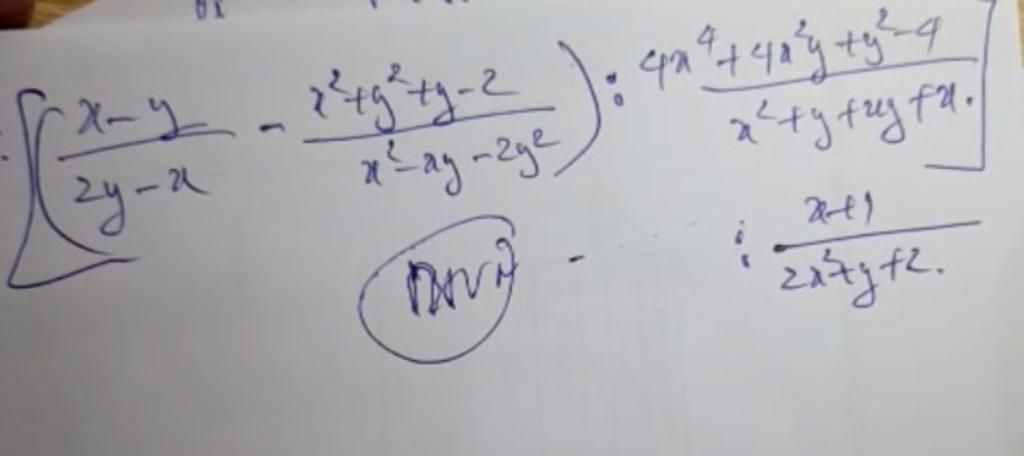 [(x-y/2y-x - x²+y²+y-2/x²-xy-2y²) : 4x⁴+4x²y+y²-4/x²+y+xy+x.]
: x+1/2x²+y+2.